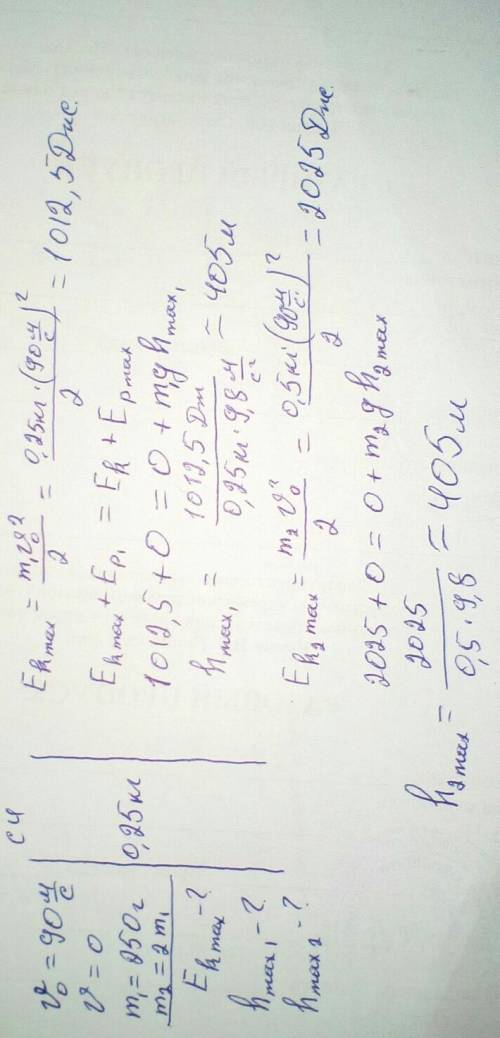 v₀ = 90 м/с
v = 0
m₁ = 250 г
m₂ = 2m₁
Eк max - ?
hmax₁ - ?
hmax₂ - ?
СИ
0,25 кг
Eк max = m₁v₀²/2 = 0,25 кг·(90 м/с)²/2 = 1012,5 Дж.
Eк max + Eр₁ = Eк + Eр max
1012,5 + 0 = 0 + m₁g hmax₁
hmax₁ = 1012,5 Дж/0,25 кг·9,8 м/с² = 405 м
Eк₂ max = m₂v₀²/2 = 0,5 кг·(90 м/с)²/2 = 2025 Дж.
2025 + 0 = 0 + m₂ g h₂ max
h₂ max = 2025/0,5·9,8 = 405 м